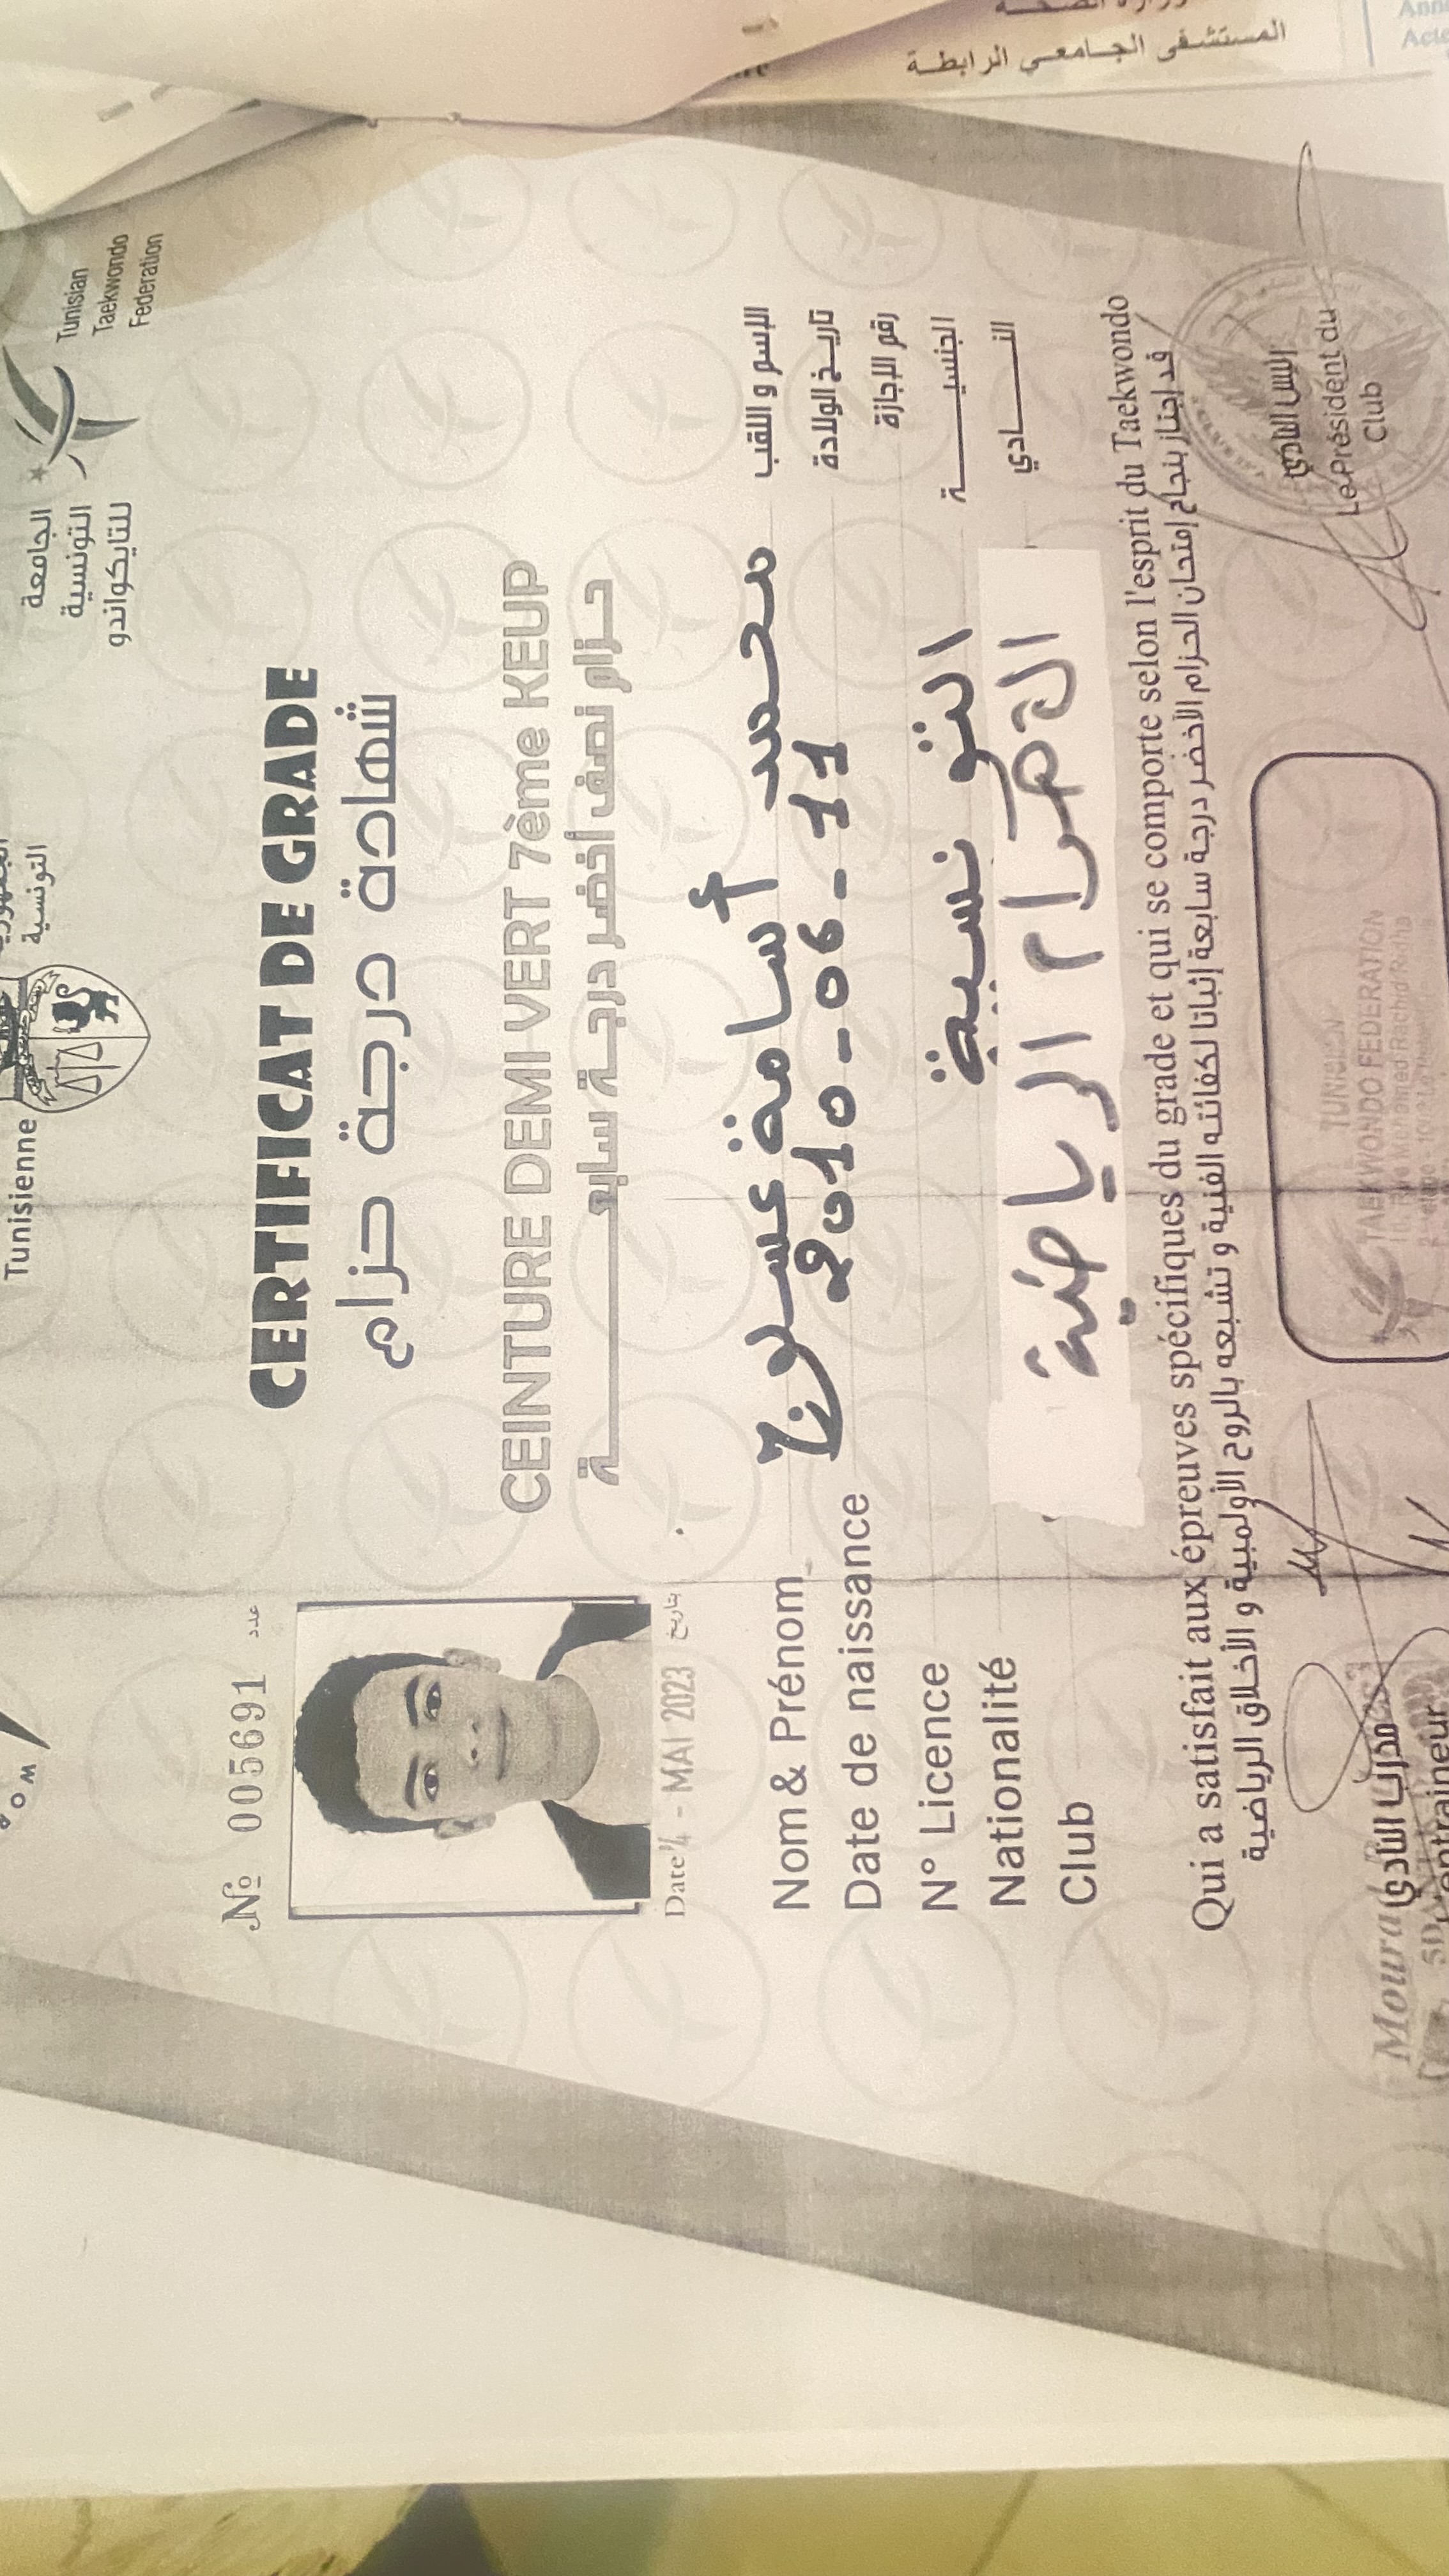 وزارة الصحة
المستشفى الجامعي الرابطة
Acte
Tunisienne
التونسية
الجامعة
التونسية
للتايكواندو
Tunisian
Taekwondo
Federation
№ 005691 عدد
CERTIFICAT DE GRADE
شهادة درجة حزام
CEINTURE DEMI-VERT 7ème KEUP
حزام نصف أخضر درجة سابعة
Date - MAI 2023 بتاريخ
Nom & Prénom محمد أسامة عسلوج الإسم و اللقب
Date de naissance 11 - 06 - 2010 تاريخ الولادة
N° Licence رقم الإجازة
Nationalité التونسية الجنسية
Club الأهرام الرياضية النادي
Qui a satisfait aux épreuves spécifiques du grade et qui se comporte selon l'esprit du Taekwondo
قد إجتاز بنجاح إمتحان الحزام الأخضر درجة سابعة إثباتا لكفائته الفنية و تشبعه بالروح الأولمبية و الأخلاق
الرياضية
مدرب النادي
L'entraineur
Mourad
TUNISIEN
TAEKWONDO FEDERATION
Le Président du
Club